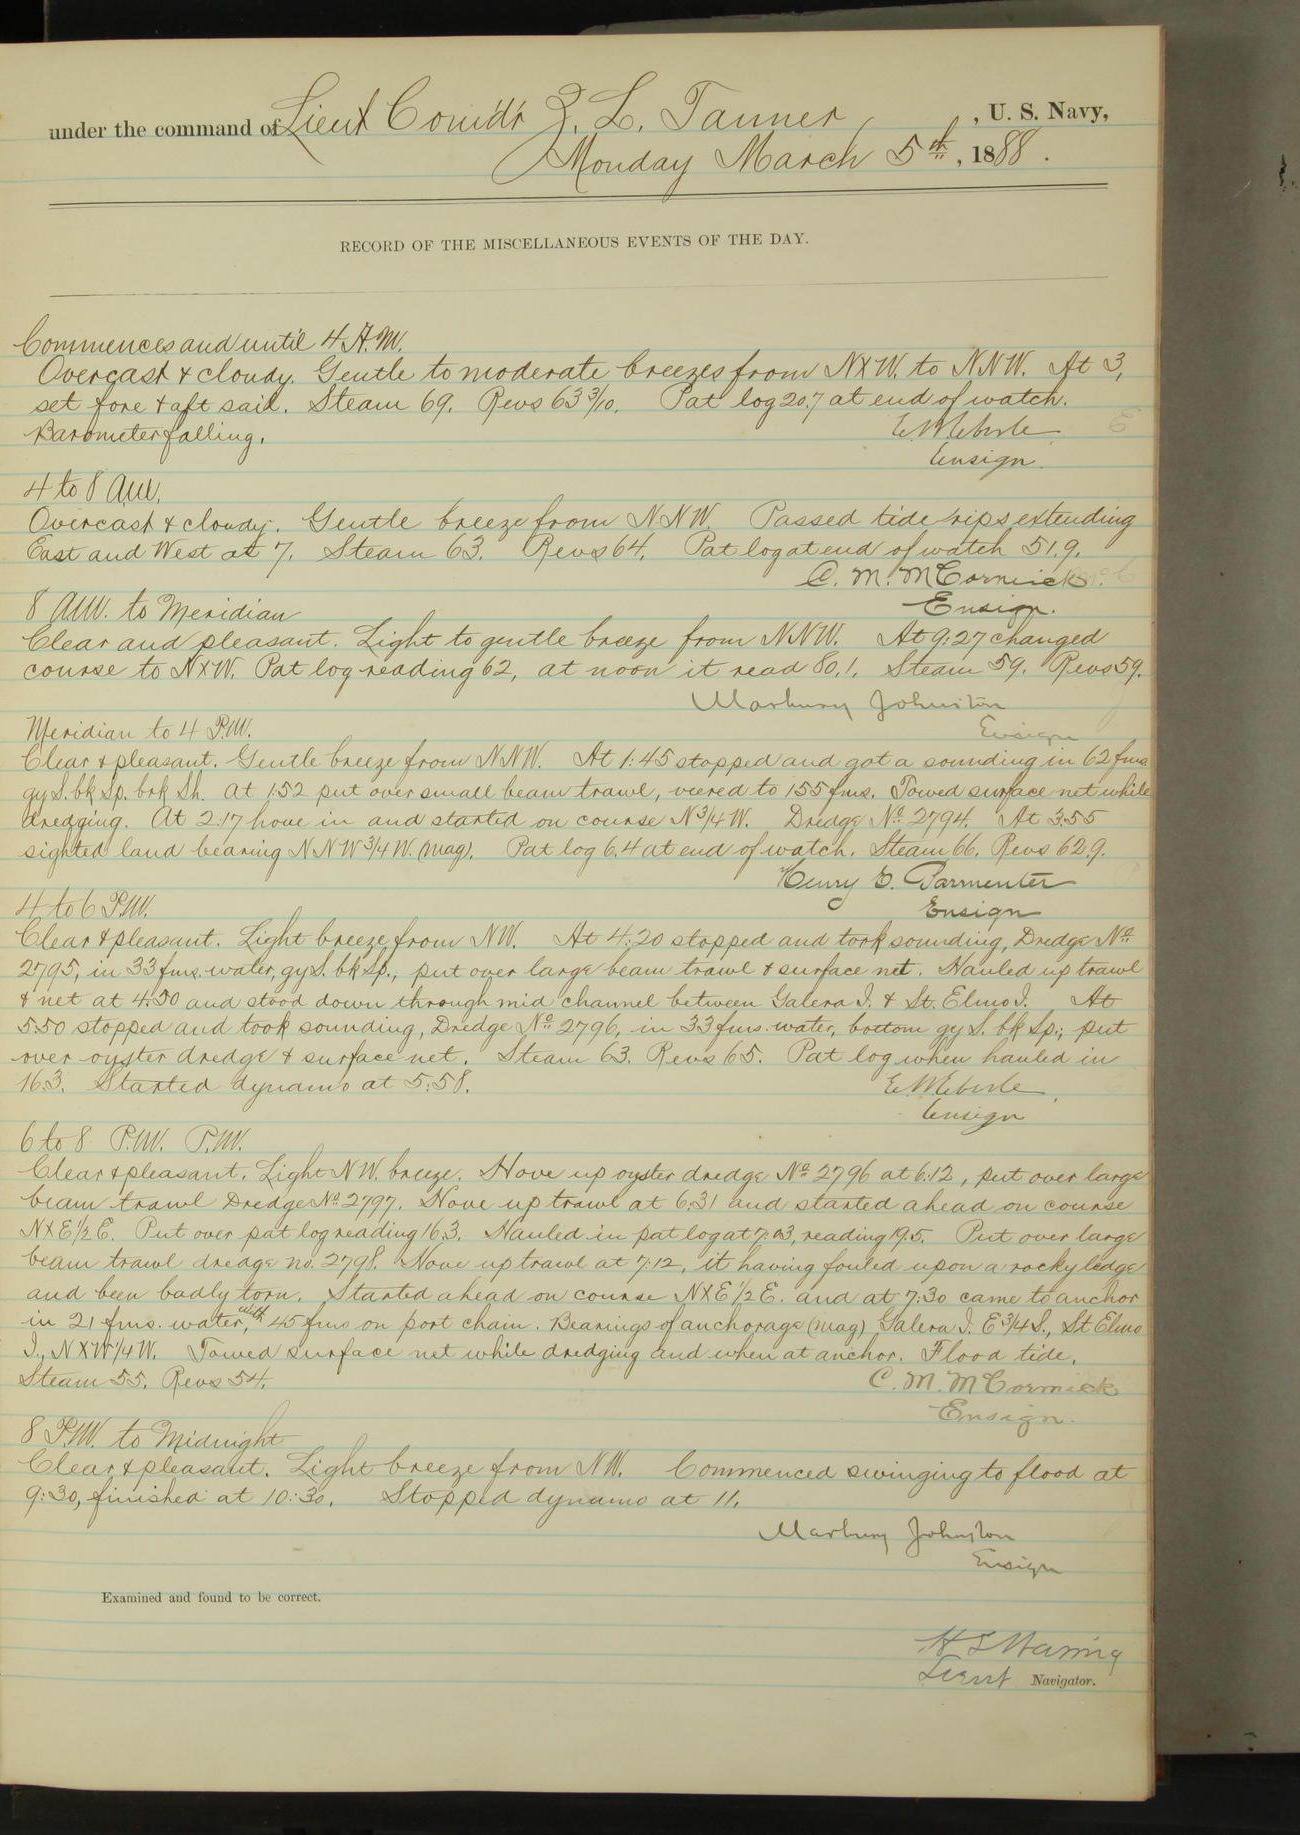 under the command of Lieut Comdr Z. L. Tanner, U. S. Navy,
Monday March 5th, 1888.
RECORD OF THE MISCELLANEOUS EVENTS OF THE DAY.
Commences and until 4 A.M.
Overcast & cloudy. Gentle to moderate breezes from NxW. to NNW. At 3,
set fore & aft sail. Steam 69. Revs 63 3/10. Pat log 20.7 at end of watch.
Barometer falling.
E W Eberle
Ensign.
4 to 8 A.M.
Overcast & cloudy. Gentle breeze from NNW. Passed tide rips extending
East and West at 7. Steam 63. Revs 64. Pat log at end of watch 51.9.
C. M. McCormick
Ensign.
8 A.M. to Meridian
Clear and pleasant. Light to gentle breeze from NNW. At 9:27 changed
course to NxW. Pat log reading 62, at noon it read 80.1. Steam 59. Revs 59.
Marbury Johnston
Ensign
Meridian to 4 P.M.
Clear & pleasant. Gentle breeze from NNW. At 1:45 stopped and got a sounding in 62 fms
gy S. bk Sp. brk Sh. At 1.52 put over small beam trawl, veered to 155 fms. Towed surface net while
dredging. At 2:17 hove in and started on course N 3/4 W. Dredge No. 2794. At 3.55
sighted land bearing NNW 3/4 W. (mag). Pat log 6.4 at end of watch. Steam 66. Revs 62.9.
Henry E. Parmenter
Ensign
4 to 6 P.M.
Clear & pleasant. Light breeze from NW. At 4:20 stopped and took sounding, Dredge No.
2795, in 33 fms. water, gy S. bk Sp., put over large beam trawl & surface net. Hauled up trawl
& net at 4:50 and stood down through mid channel between Galera I. & St. Elmo I. At
5.50 stopped and took sounding, Dredge No. 2796, in 33 fms. water, bottom gy S. bk Sp.; put
over oyster dredge & surface net. Steam 63. Revs 65. Pat log when hauled in
16.3. Started dynamo at 5:58.
E W Eberle
Ensign
6 to 8 P.M. P.M.
Clear & pleasant. Light NW. breeze. Hove up oyster dredge No. 2796 at 6.12, put over large
beam trawl Dredge No. 2797. Hove up trawl at 6.31 and started ahead on course
NxE 1/2 E. Put over pat log reading 16.3. Hauled in pat log at 7:03, reading 19.5. Put over large
beam trawl dredge no. 2798. Hove up trawl at 7:12, it having fouled upon a rocky ledge
and been badly torn. Started ahead on course NxE 1/2 E. and at 7:30 came to anchor
in 21 fms. water, with 45 fms on port chain. Bearings of anchorage (mag) Galera I. E 3/4 S., St Elmo
I., NxW 1/4 W. Towed surface net while dredging and when at anchor. Flood tide.
Steam 55. Revs 54.
C. M. McCormick
Ensign.
8 P.M. to Midnight
Clear & pleasant. Light breeze from NW. Commenced swinging to flood at
9:30, finished at 10:30. Stopped dynamo at 11.
Marbury Johnston
Ensign
Examined and found to be correct.
H S Waring
Lieut Navigator.